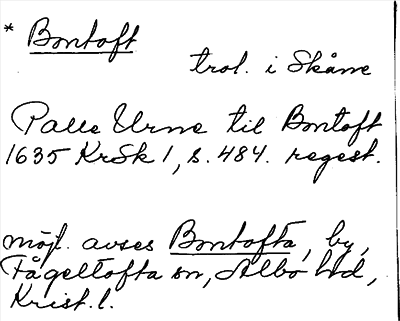 * Bontoft
trol. i Skåne
Palle Urne til Bontoft
1635 KrSk 1, s. 484. regest.
möjl. avses Bontofta, by,
Fågeltofta sn, Albo hd,
Krist. l.